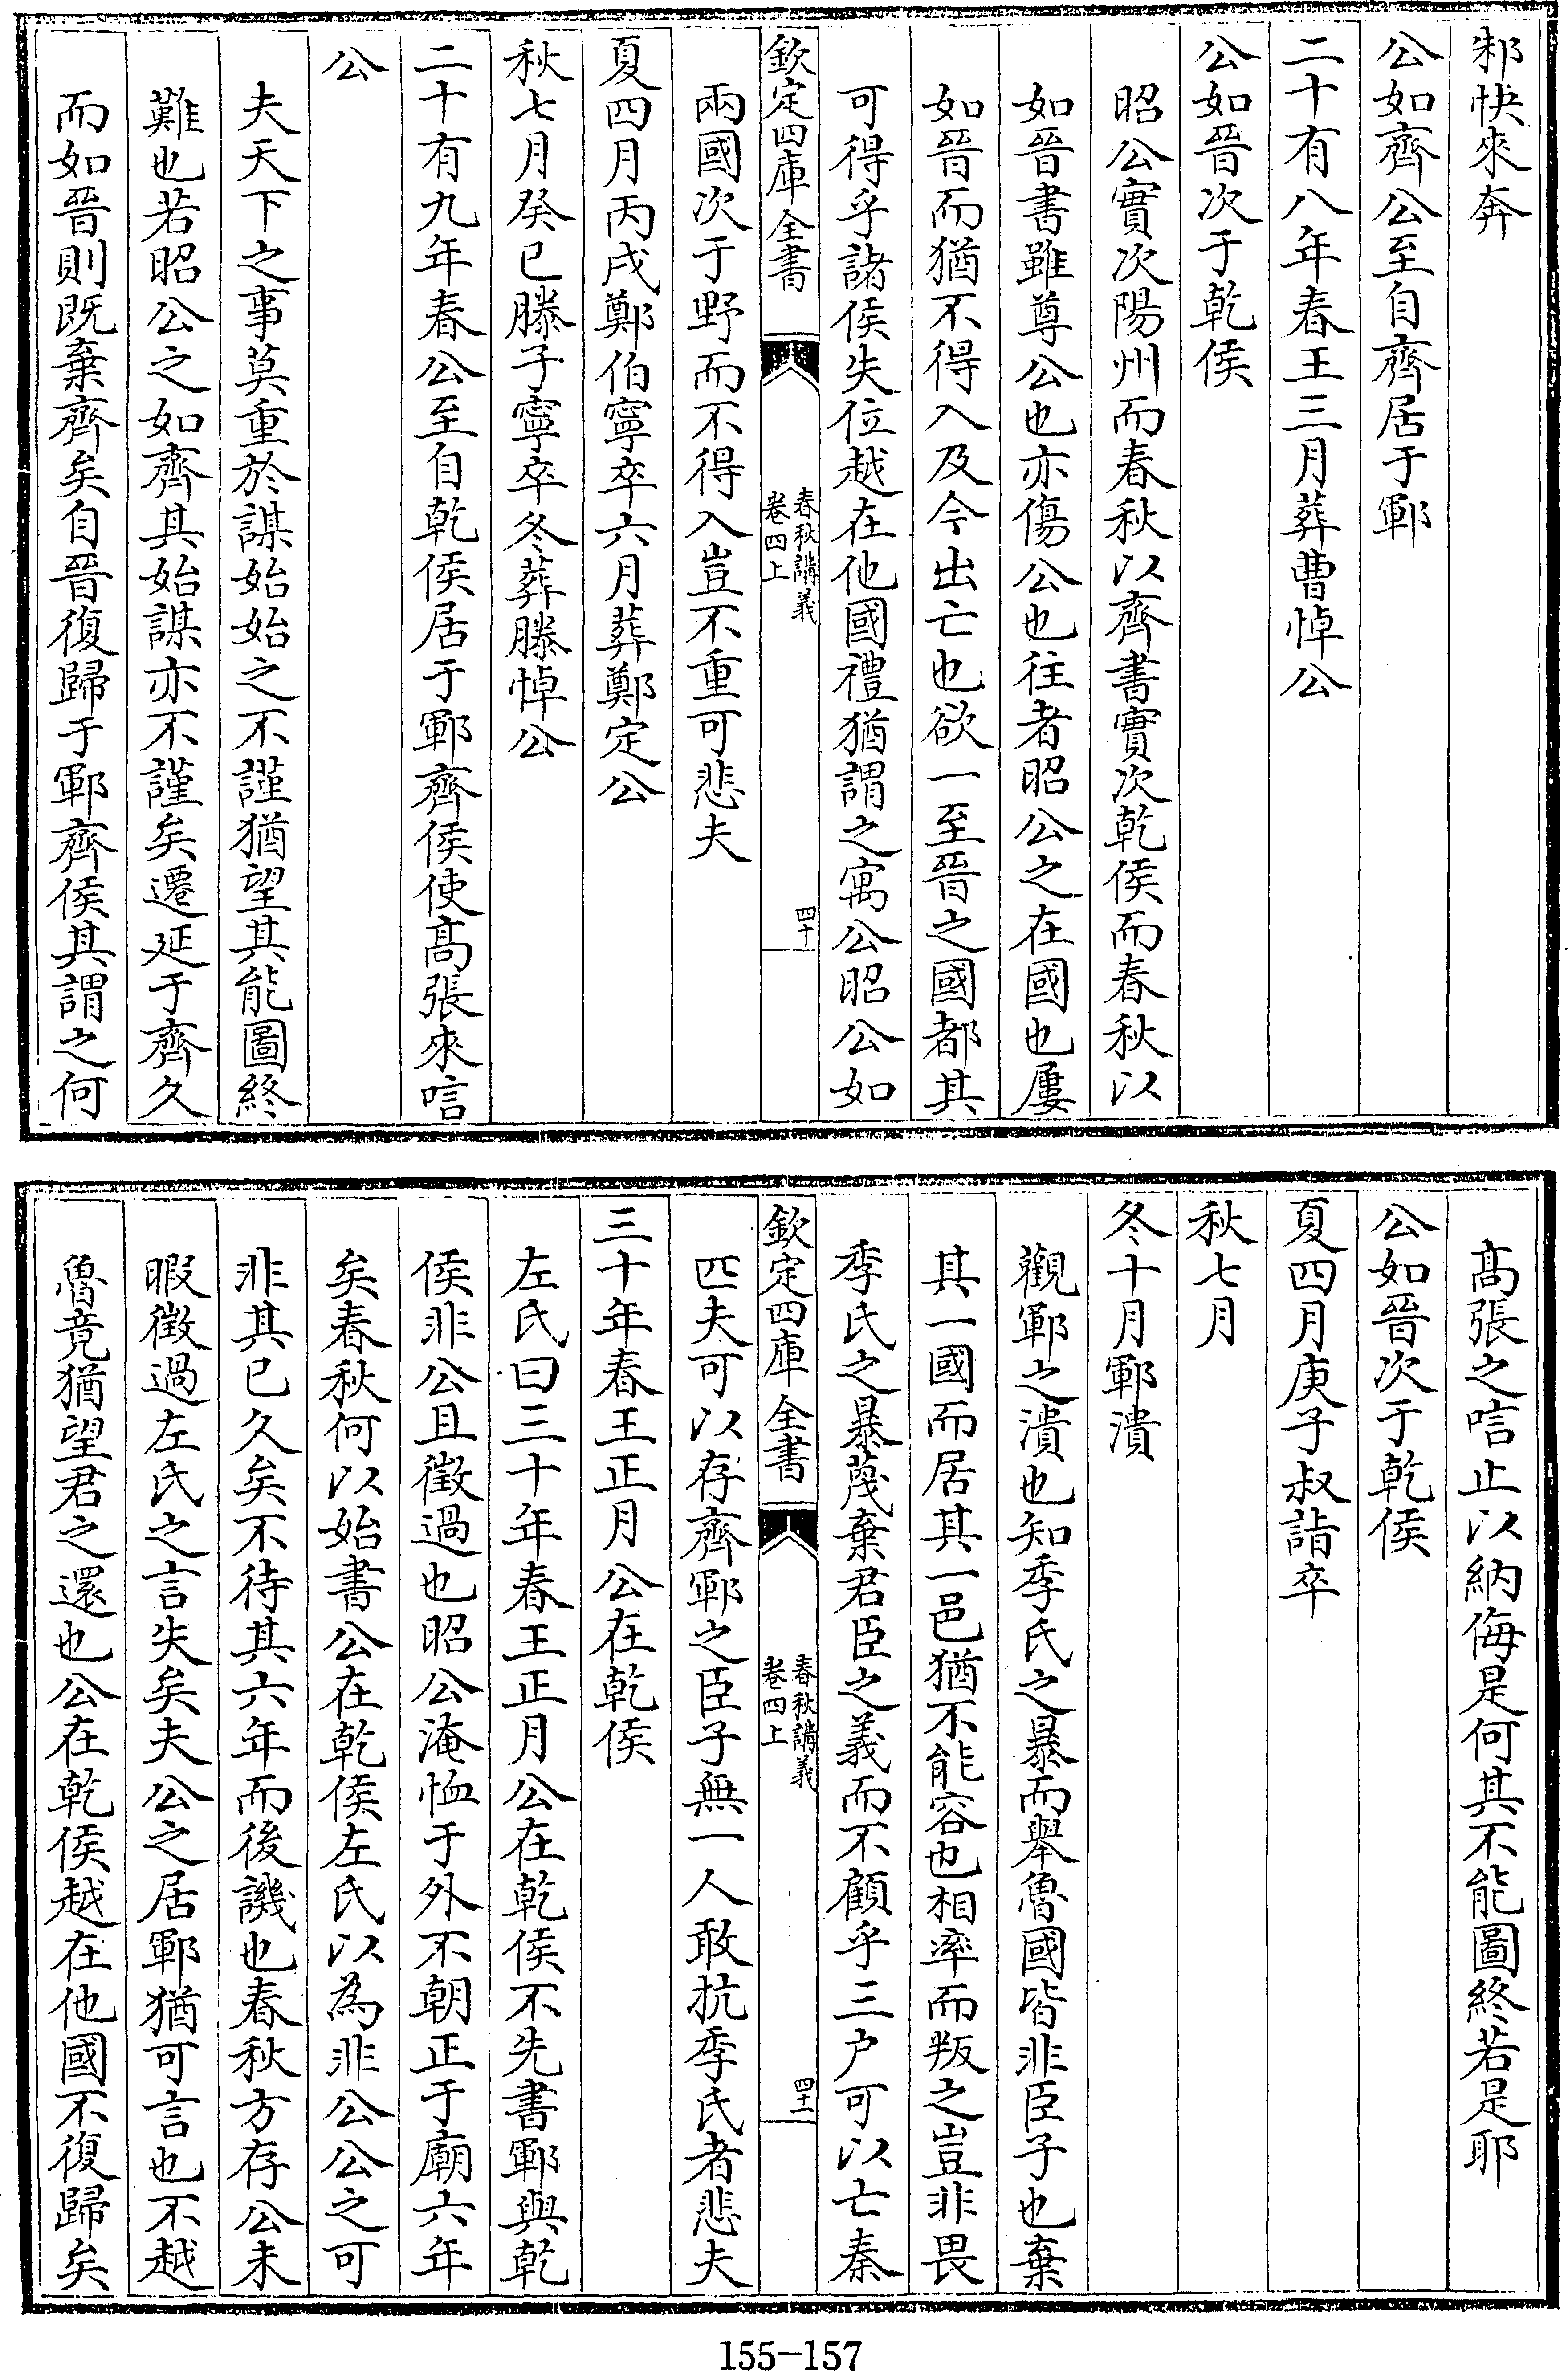 邾快來奔
公如齊公至自齊居于鄆
二十有八年春王三月葬曹悼公
公如晉次于乾侯
昭公實次陽州而春秋以齊書實次乾侯而春秋以
如晉書雖尊公也亦傷公也往者昭公之在國也屢
如晉而猶不得入及今出亡也欲一至晉之國都其
可得乎諸侯失位越在他國禮猶謂之寓公昭公如
欽定四庫全書
春秋講義
卷四上
四十
兩國次于野而不得入豈不重可悲夫
夏四月丙戌鄭伯寧卒六月葬鄭定公
秋七月癸巳滕子寧卒冬葬滕悼公
二十有九年春公至自乾侯居于鄆齊侯使髙張來唁
公
夫天下之事莫重於謀始始之不謹猶望其能圖終
難也若昭公之如齊其始謀亦不謹矣遷延于齊久
而如晉則既棄齊矣自晉復歸于鄆齊侯其謂之何
髙張之唁止以納侮是何其不能圖終若是耶
公如晉次于乾侯
夏四月庚子叔詣卒
秋七月
冬十月鄆潰
觀鄆之潰也知季氏之暴而舉魯國皆非臣子也棄
其一國而居其一邑猶不能容也相率而叛之豈非畏
季氏之暴蔑棄君臣之義而不顧乎三户可以亡秦
欽定四庫全書
春秋講義
卷四上
四十一
匹夫可以存齊鄆之臣子無一人敢抗季氏者悲夫
三十年春王正月公在乾侯
左氏曰三十年春王正月公在乾侯不先書鄆與乾
侯非公且徵過也昭公淹恤于外不朝正于廟六年
矣春秋何以始書公在乾侯左氏以為非公公之可
非其已久矣不待其六年而後譏也春秋方存公未
暇徵過左氏之言失矣夫公之居鄆猶可言也不越
魯竟猶望君之還也公在乾侯越在他國不復歸矣
155-157